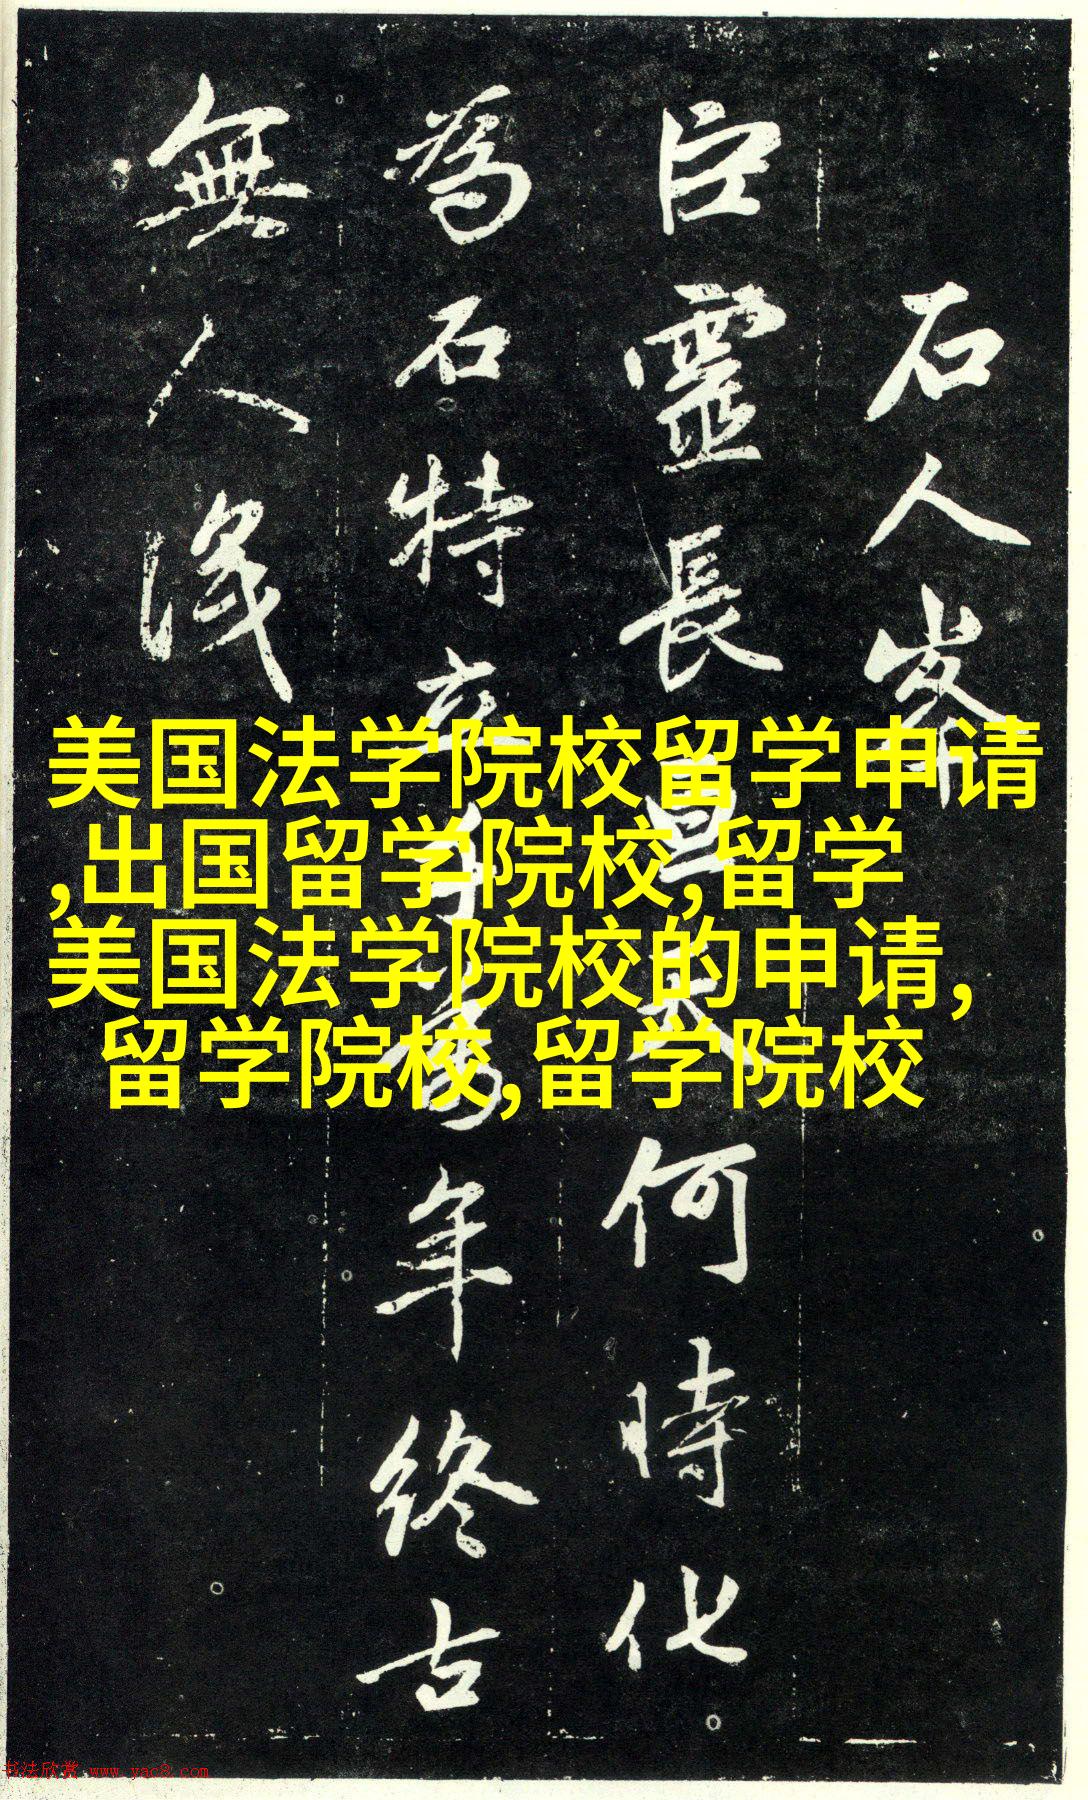 石人峯
巨靈長亘天何時化
為石特立千萬年終古
無人識
美国法学院校留学申请
,出国留学院校,留学
美国法学院校的申请,
留学院校,留学院校
书法欣赏 www.yac8.com